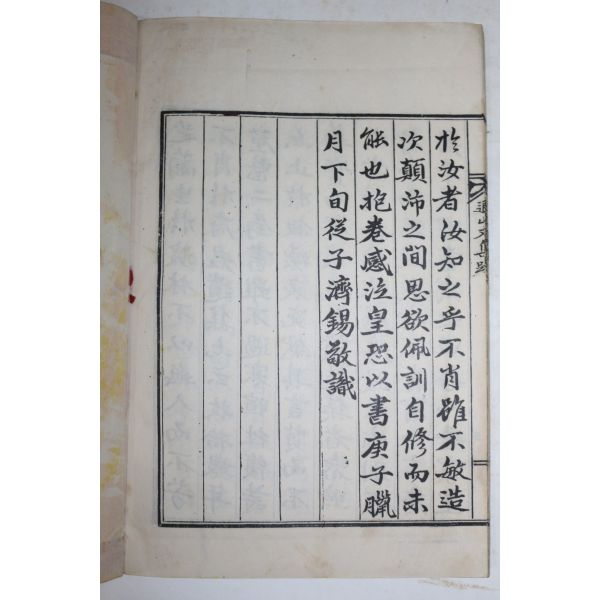 於汝者汝知之乎不肖雖不敏造
次顚沛之間思欲佩訓自修而未
能也抱卷感泣皇恐以書庚子臘
月下旬從子濟錫敬識
山文集跋